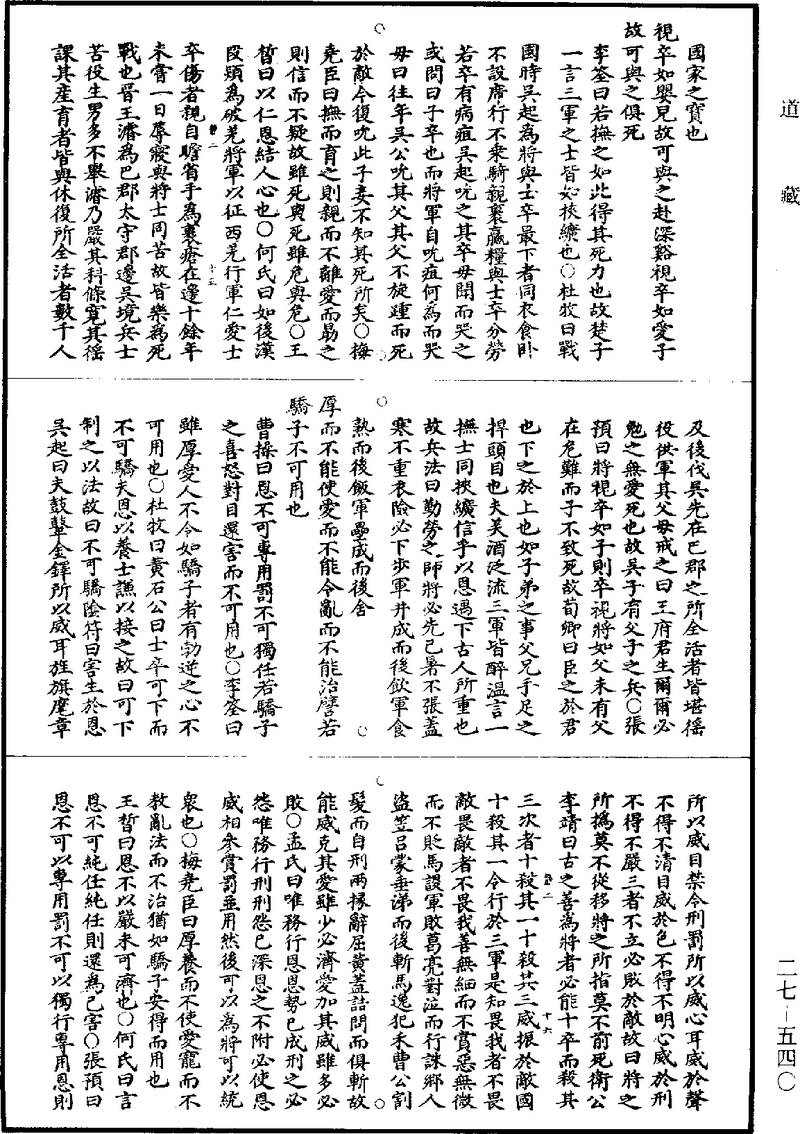 道藏
國家之寶也
視卒如嬰兒故可與之赴深谿視卒如愛子
故可與之俱死
李筌曰若撫之如此得其死力也故楚子
一言三軍之士皆如挾纊也〇杜牧曰戰
國時吳起為將與士卒最下者同衣食卧
不設席行不乘騎親裹贏糧與士卒分勞
若卒有病疽吳起吮之其卒母聞而哭之
或問曰子卒也而將軍自吮疽何為而哭
母曰往年吳公吮其父其父不旋踵而死
於敵今復吮此子妾不知其死所矣〇梅
堯臣曰撫而育之則親而不離愛而勗之
則信而不疑故雖死與死雖危與危〇王
晳曰以仁恩結人心也〇何氏曰如後漢
段熲為破羌將軍以征西羌行軍仁愛士
卒傷者親自瞻省手為裹瘡在邊十餘年
未嘗一日蓐寢與將士同苦故皆樂為死
戰也晉王濬為巴郡太守郡邊吳境兵士
苦役生男多不舉濬乃嚴其科條寬其徭
課其產育者皆與休復所全活者數千人
及後伐吳先在巴郡之所全活者皆堪徭
役供軍其父母戒之曰王府君生爾爾必
勉之無愛死也故吳子有父子之兵〇張
預曰將視卒如子則卒視將如父未有父
在危難而子不致死故荀卿曰臣之於君
也下之於上也如子弟之事父兄手足之
捍頭目也夫美酒泛流三軍皆醉溫言一
撫士同挾纊信乎以恩遇下古人所重也
故兵法曰勤勞之師將必先己暑不張蓋
寒不重衣險必下步軍井成而後飲軍食
熟而後飯軍壘成而後舍
厚而不能使愛而不能令亂而不能治譬若
驕子不可用也
曹操曰恩不可專用罰不可獨任若驕子
之喜怒對目還害而不可用也〇李筌曰
雖厚愛人不令如驕子者有勃逆之心不
可用也〇杜牧曰黃石公曰士卒可下而
不可驕夫恩以養士謙以接之故曰可下
制之以法故曰不可驕陰符曰害生於恩
吳起曰夫鼓鼙金鐸所以威耳旌旗麾章
所以威目禁令刑罰所以威心耳威於聲
不得不清目威於色不得不明心威於刑
不得不嚴三者不立必敗於敵故曰將之
所撝莫不從移將之所指莫不前死衛公
李靖曰古之善為將者必能十卒而殺其
三次者十殺其一十殺其三威振於敵國
十殺其一令行於三軍是知畏我者不畏
敵畏敵者不畏我善無細而不賞惡無微
而不貶馬謖軍敗葛亮對泣而行誅鄉人
盜笠呂蒙垂涕而後斬馬逸犯麥曹公割
髮而自刑兩掾辭屈黃蓋詰問而俱斬故
能威克其愛雖少必濟愛加其威雖多必
敗〇孟氏曰唯務行恩恩勢已成刑之必
怨唯務行刑刑怨已深恩之不附必使恩
威相參賞罰並用然後可以為將可以統
衆也〇梅堯臣曰厚養而不使愛寵而不
教亂法而不治猶如驕子安得而用也
王晳曰恩不以嚴未可濟也〇何氏曰言
恩不可純任純任則還為己害〇張預曰
恩不可以專用罰不可以獨行專用恩則
二七-五四〇